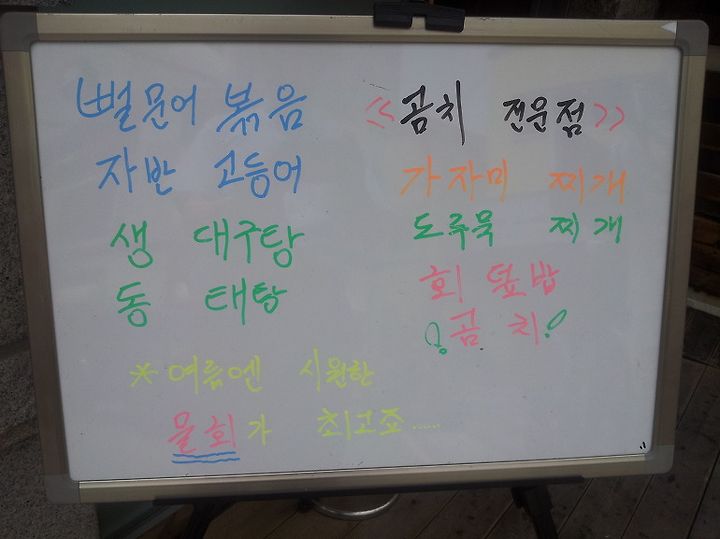 뻘문어 볶음
자반 고등어
생 대구탕
동 태탕
<<곰치 전문점>>
가자미 찌개
도루묵 찌개
회 덮밥
곰 치
* 여름엔 시원한
물회가 최고죠......